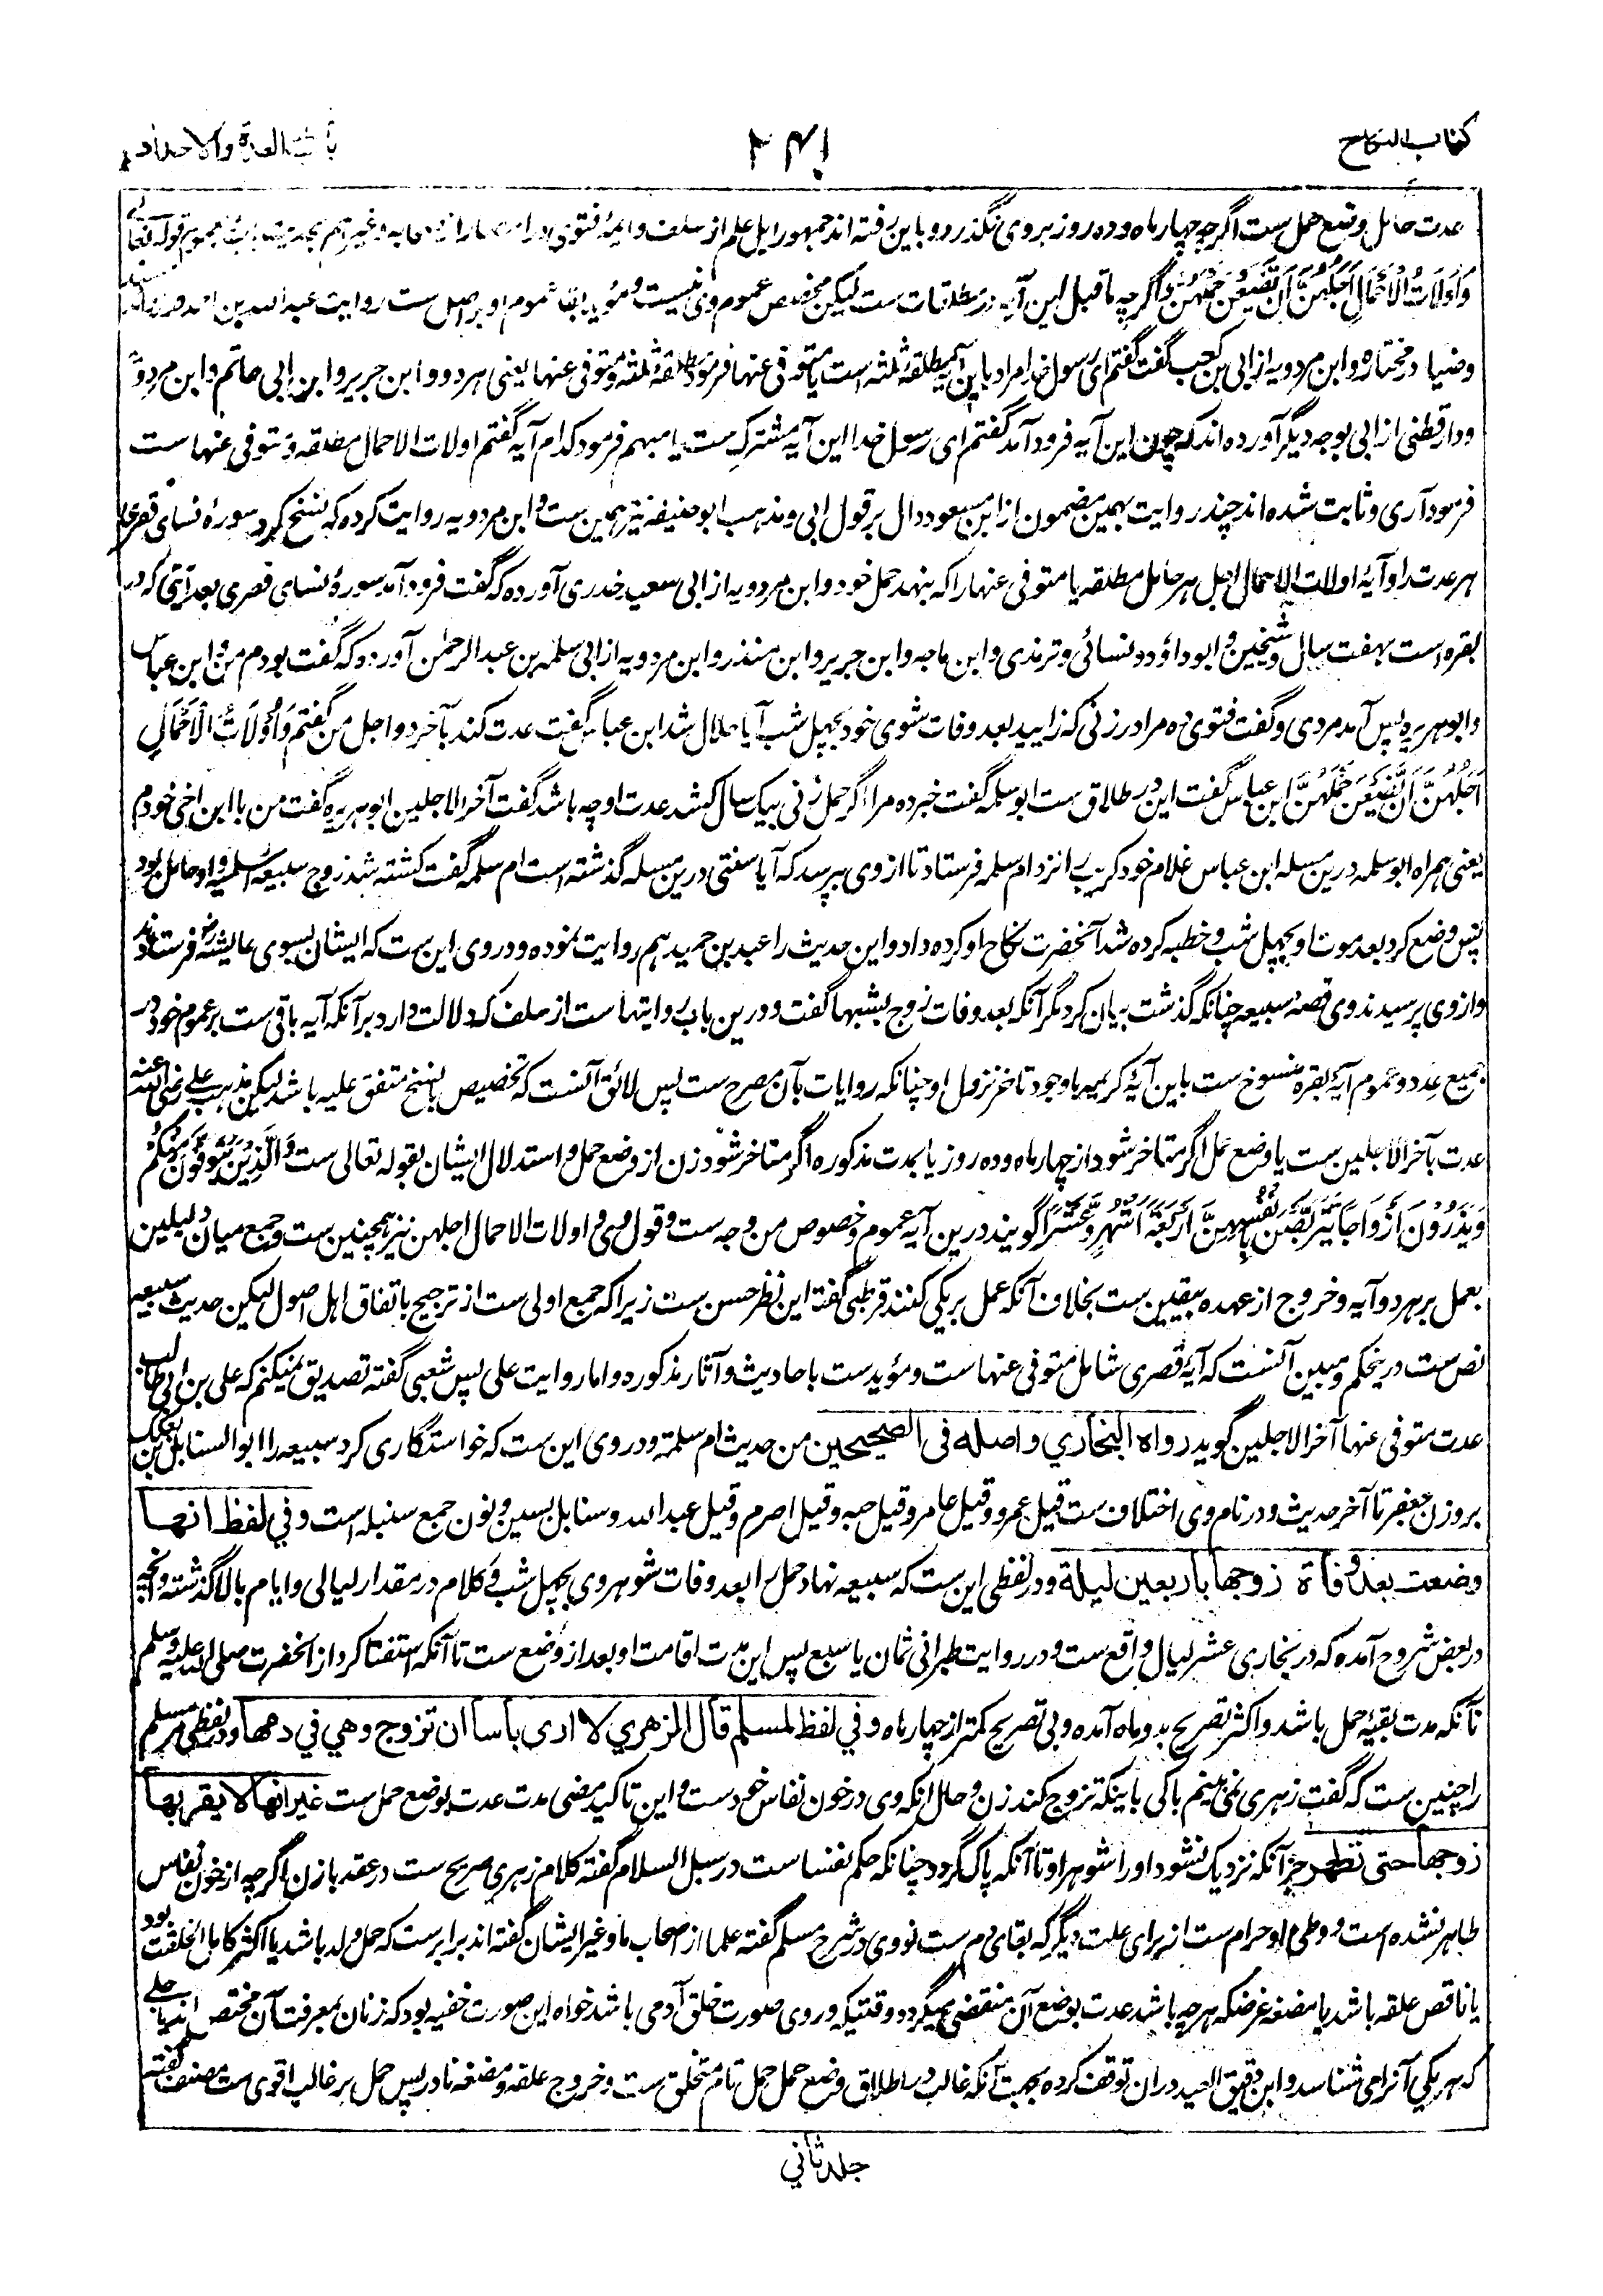 کتاب النکاح
۲۴۱
باب العدة والاحداد
عدت حامل وضع حمل ست اگرچه چهار ماه و ده روز بروی نگذرد و باین رفته اند جمهور اہل علم از سلف و ایمهٔ فتوی در امصار از صحابه و غیرہم بحدیث باب بعموم قوله تعالی
وَأُولَاتُ الْأَحْمَالِ أَجَلُهُنَّ أَن يَضَعْنَ حَمْلَهُنَّ و اگرچه ما قبل این آیه در مطلقات ست لیکن مخصص عموم وی نیست و مؤید بقا عموم او بر اصل ست روایت عبدالله بن احمد در زوائد مسند
وضیا در مختاره و ابن مردویه از ابی بن کعب گفت گفتم ای رسول خدا مراد باین آیه مطلقه ثلثه است یا متوفی عنها فرمود مطلقه ثلثه و متوفی عنها یعنی هر دو و ابن جریر و ابن ابی حاتم و ابن مردویه
ودارقطنی از ابی بوجه دیگر آورده اند که چون این آیه فرود آمد گفتم ای رسول خدا این آیه مشترک ست یا مبهم فرمود کدام آیه گفتم اولات الاحمال مطلقه و متوفی عنها ست
فرمود آری و ثابت شده اند چند روایت بهمین مضمون از ابن مسعود دال بر قول ابی و مذهب ابو حنیفه نیز همین ست و ابن مردویه روایت کرده که نسخ کرد سورهٔ نسای قصری
هر عدت را و آیهٔ اولات الاحمال اجل هر حامل مطلقه یا متوفی عنها را که بنهد حمل خود و ابن مردویه از ابی سعید خدری آورده که گفت فرود آمد سورهٔ نسای قصری بعد آیتی که در
بقره است بهفت سال و شیخین و ابو داؤد و نسائی و ترمذی و ابن ماجه و ابن جریر و ابن منذر و ابن مردویه از ابی سلمه بن عبد الرحمٰن آورده که گفت بودم من و ابن عباس
و ابو هریره پس آمد مردی و گفت فتوی ده مرا در زنی که زایید بعد وفات شوی خود بچهل شب آیا حلال شد ابن عباس گفت عدت کند بآخر دو اجل من گفتم وَأُولَاتُ الْأَحْمَالِ
أَجَلُهُنَّ أَن يَضَعْنَ حَمْلَهُنَّ ابن عباس گفت این در طلاق ست ابو سلمه گفت خبر ده مرا اگر حمل زنی بیک سال کشد عدت او چه باشد گفت آخر الاجلین ابو هریره گفت من با ابن اخی خودم
یعنی همراه ابو سلمه درین مسله ابن عباس غلام خود کریب را نزد ام سلمه فرستاد تا از وی بپرسد که آیا سنتی درین مسله گذشته است ام سلمه گفت کشته شد زوج سبیعه اسلمیه و او حامل بود
پس وضع کرد بعد موت او بچهل شب و خطبه کرده شد آنحضرت نکاح او کرده داد و این حدیث را عبد بن حمید هم روایت نموده و در وی این ست که ایشان بسوی عایشه فرستادند
و از وی پرسیدند وی قصهٔ سبیعه چنانکه گذشت بیان کرد مگر آنکه بعد وفات زوج بشبها گفت و درین باب روایتها ست از سلف که دلالت دارد بر آنکه آیه باقی ست بر عموم خود در
جمیع عدد و عموم آیهٔ بقره منسوخ ست باین آیهٔ کریمه با وجود تاخر نزول او چنانکه روایات بآن مصرح ست پس لائق آنست که تخصیص یا نسخ متفق علیه باشد لیکن مذهب علی رضی الله عنه
عدت بآخر الاجلین ست یا وضع حمل اگر متاخر شود از چهار ماه و ده روز یا بمدت مذکوره اگر متاخر شود زن از وضع حمل و استدلال ایشان بقوله تعالی ست وَالَّذِينَ يُتَوَفَّوْنَ مِنكُمْ
وَيَذَرُونَ أَزْوَاجًا يَتَرَبَّصْنَ بِأَنفُسِهِنَّ أَرْبَعَةَ أَشْهُرٍ وَعَشْرًا گویند درین آیه عموم و خصوص من وجه ست و قول وی و اولات الاحمال اجلهن نیز همچنین ست و جمع میان دلیلین
بعمل بر هر دو آیه و خروج از عهده بیقین ست بخلاف آنکه عمل بر یکی کنند قرطبی گفته این نظر حسن ست زیرا که جمع اولی ست از ترجیح باتفاق اہل اصول لیکن حدیث سبیعه
نص ست درینحکم و مبین آنست که آیهٔ قصری شامل متوفی عنها ست و مؤید ست باحادیث و آثار مذکوره و اما روایت علی پس شعبی گفته تصدیق نمیکنم که علی بن ابی طالب
عدت متوفی عنها آخر الاجلین گوید رواه البخاري واصله فی الصحیحین من حدیث ام سلمة و در وی این ست که خواستگاری کرد سبیعه را ابو السنابل بن بعکک
بروزن جعفر تا آخر حدیث و در نام وی اختلاف ست قیل عمرو و قیل عامر و قیل حبه و قیل اصرم و قیل عبد الله و سنابل بسین و نون جمع سنبله است وفي لفظ انها
وضعت بعد وفاة زوجها باربعین لیلة و در لفظی این ست که سبیعه نهاد حمل را بعد وفات شوهر وی بچهل شب و کلام در مقدار لیالی و ایام بالا گذشته و آنچه
در بعض شروح آمده که در بخاری عشر لیال واقع ست و در روایت طبرانی ثمان یا سبع پس این مدت اقامت او بعد از وضع ست تا آنکه استفتا کرد از آنحضرت صلی الله علیه وسلم
نه آنکه مدت بقیهٔ حمل باشد و اکثر تصریح بدو ماه آمده و بی تصریح کمتر از چهار ماه وفي لفظ لمسلم قال الزهري لا اری باسا ان تزوج وهي في دمها و در لفظی مر مسلم
را چنین ست که گفت زهری نمی بینم باکی باینکه تزوج کند زن و حال آنکه وی در خون نفاس خود ست و این تاکید مضی مدت عدت بوضع حمل ست غیر انها لا یقربها
زوجها حتی تطهر جز آنکه نزدیک نشود او را شوهر او تا آنکه پاک گردد چنانکه حکم نفسا ست در سبل السلام گفته کلام زهری صریح ست در عقد بازن اگرچه از خون نفاس
طاهر نشده است و وطی او حرام ست از برای علت دیگر که بقای دم ست نووی در شرح مسلم گفته علما از اصحاب ما و غیر ایشان گفته اند برابر ست که حمل ولد باشد یا اکثر کامل الخلقت بود
یا ناقص علقه باشد یا مضغه غرضکه هر چه باشد عدت بوضع آن منقضی میگردد وقتیکه در وی صورت خلق آدمی باشد خواه این صورت خفیه بود که زنان بمعرفت آن مختص اند یا جلی
که هر یکی آنرا می شناسد و ابن دقیق العید در ان توقف کرده بجهت آنکه غالب در اطلاق وضع حمل حمل تام متخلق ست و خروج علقه و مضغه نادر پس حمل بر غالب اقوی ست مصنف گفته
جلد ثاني